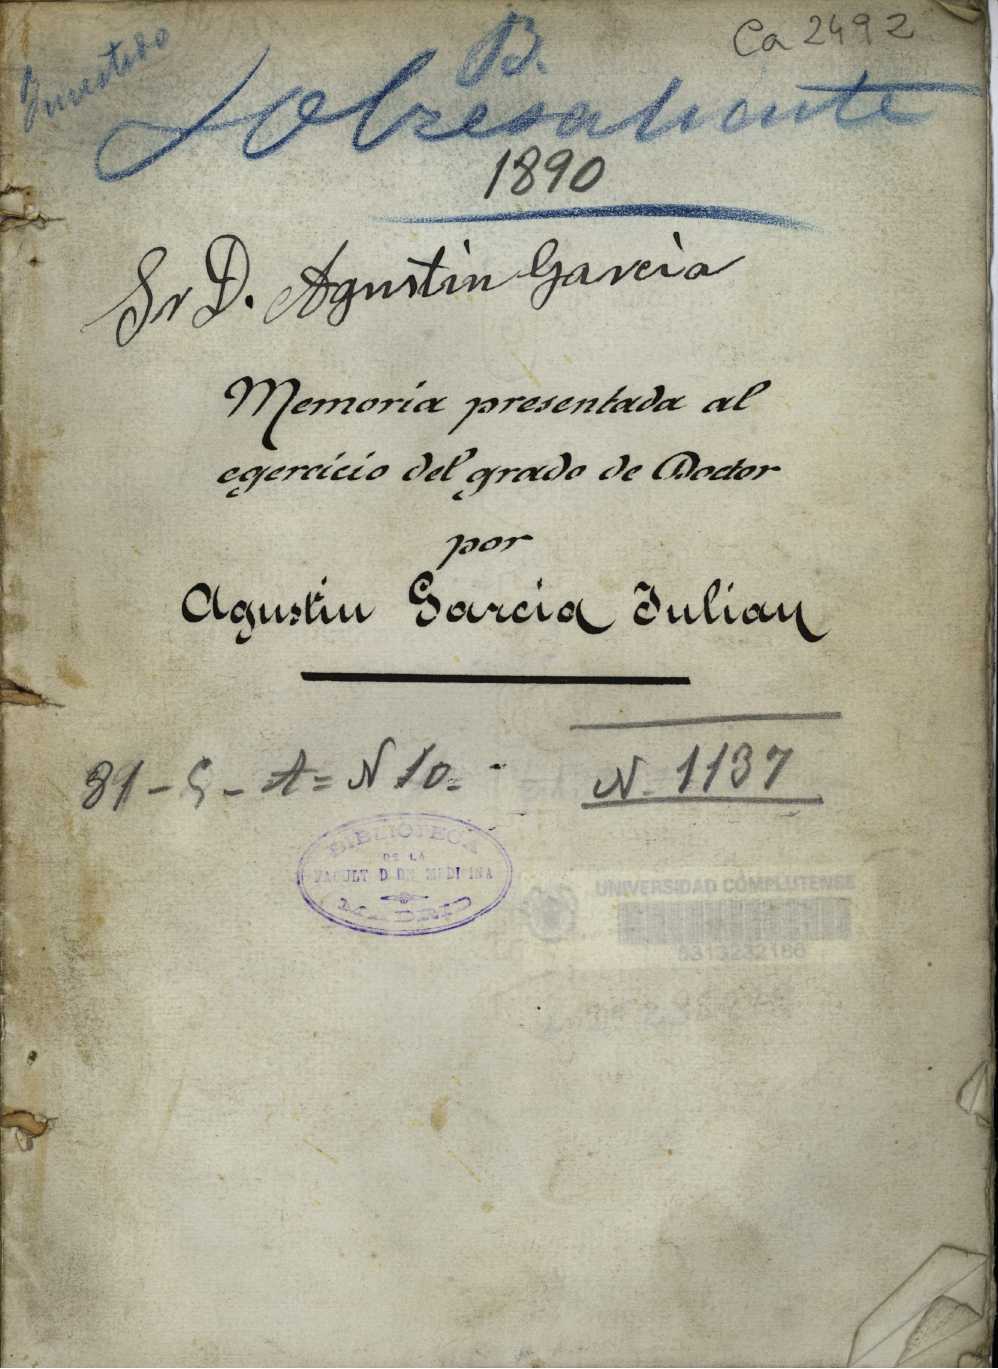 Ca 2492
Investido
B.
Sobresaliente
1890
Sr D. Agustin Garcia
Memoria presentada al
egercicio del grado de Doctor
por
Agustin Garcia Julian
81-G-A=N10=
N. 1137
BIBLIOTECA
DE LA
FACULTAD DE MEDICINA
MADRID
UNIVERSIDAD COMPLUTENSE
5313232166